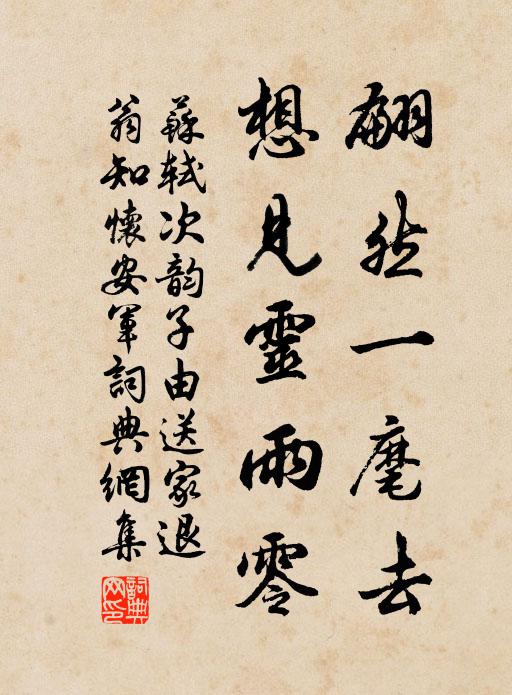 翩然一麾去
想見靈雨零
蘇軾次韵子由送家退
翁知懷安軍詞典網集
詞典
网印